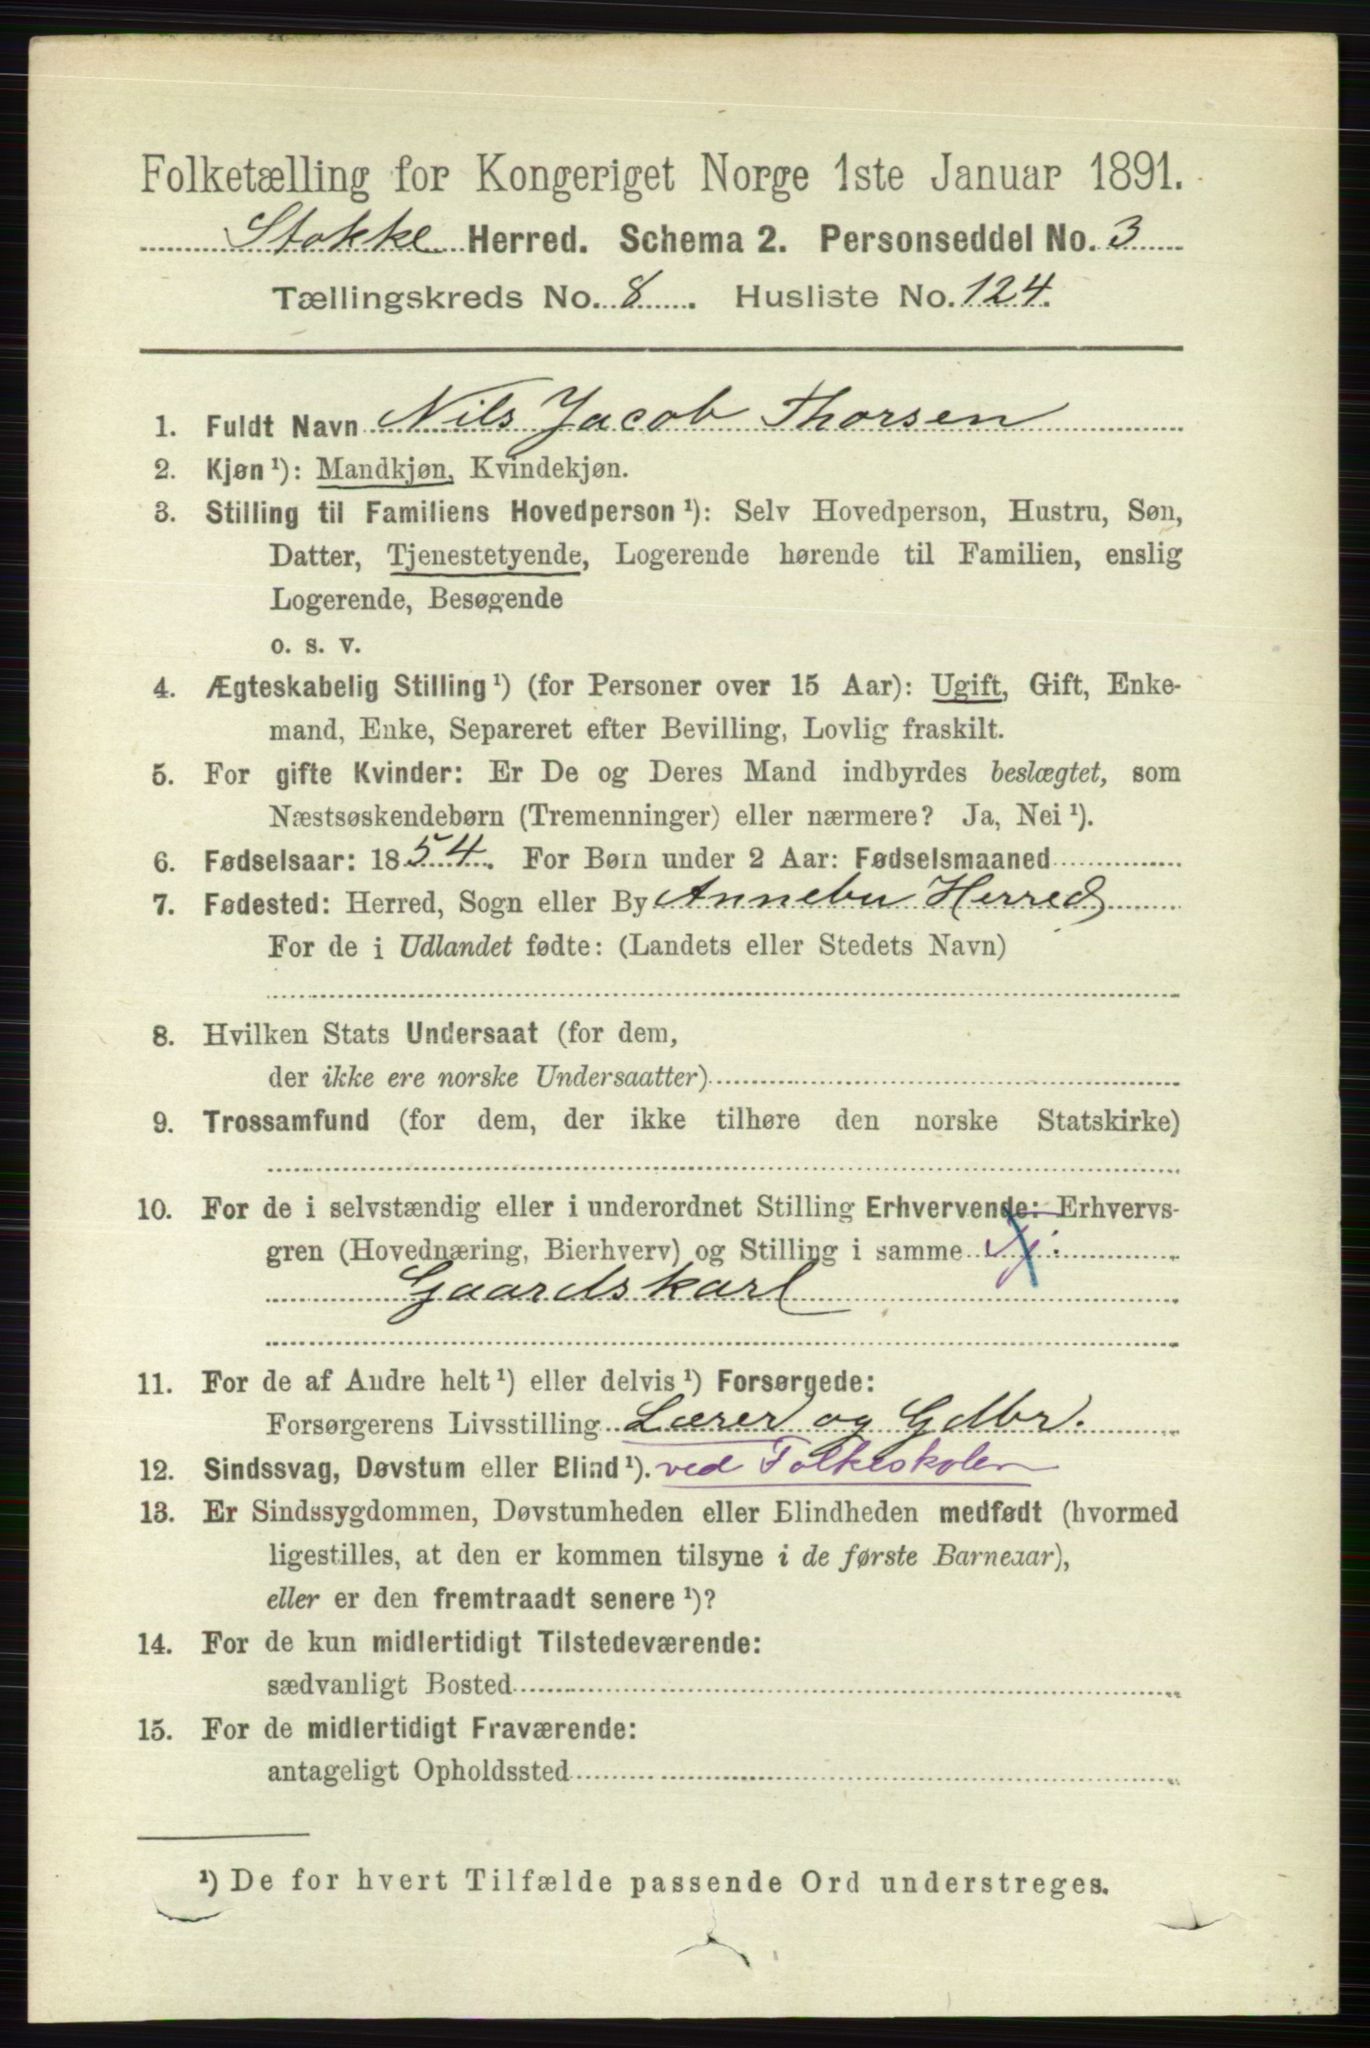 Folketælling for Kongeriget Norge 1ste Januar 1891.
Stokke Herred. Schema 2. Personseddel No. 3
Tællingskreds No. 8. Husliste No. 124.
1. Fuldt Navn Nils Jacob Thorsen
2. Kjøn ¹): Mandkjøn, Kvindekjøn.
3. Stilling til Familiens Hovedperson ¹): Selv Hovedperson, Hustru, Søn,
Datter, Tjenestetyende, Logerende hørende til Familien, enslig
Logerende, Besøgende
o. s. v.
4. Ægteskabelig Stilling ¹) (for Personer over 15 Aar): Ugift, Gift, Enke-
mand, Enke, Separeret efter Bevilling, Lovlig fraskilt.
5. For gifte Kvinder: Er De og Deres Mand indbyrdes beslægtet, som
Næstsøskendebørn (Tremenninger) eller nærmere? Ja, Nei ¹).
6. Fødselsaar: 1854. For Børn under 2 Aar: Fødselsmaaned
7. Fødested: Herred, Sogn eller By Annebu Herred
For de i Udlandet fødte: (Landets eller Stedets Navn)
8. Hvilken Stats Undersaat (for dem,
der ikke ere norske Undersaatter)
9. Trossamfund (for dem, der ikke tilhøre den norske Statskirke)
10. For de i selvstændig eller i underordnet Stilling Erhvervende: Erhvervs-
gren (Hovednæring, Bierhverv) og Stilling i samme
Gaardskarl
11. For de af Andre helt ¹) eller delvis ¹) Forsørgede:
Forsørgerens Livsstilling Lærer og Gdbr.
12. Sindssvag, Døvstum eller Blind ¹). ved Folkeskolen
13. Er Sindssygdommen, Døvstumheden eller Blindheden medfødt (hvormed
ligestilles, at den er kommen tilsyne i de første Barneaar),
eller er den fremtraadt senere ¹)?
14. For de kun midlertidigt Tilstedeværende:
sædvanligt Bosted
15. For de midlertidigt Fraværende:
antageligt Opholdssted
¹) De for hvert Tilfælde passende Ord understreges.